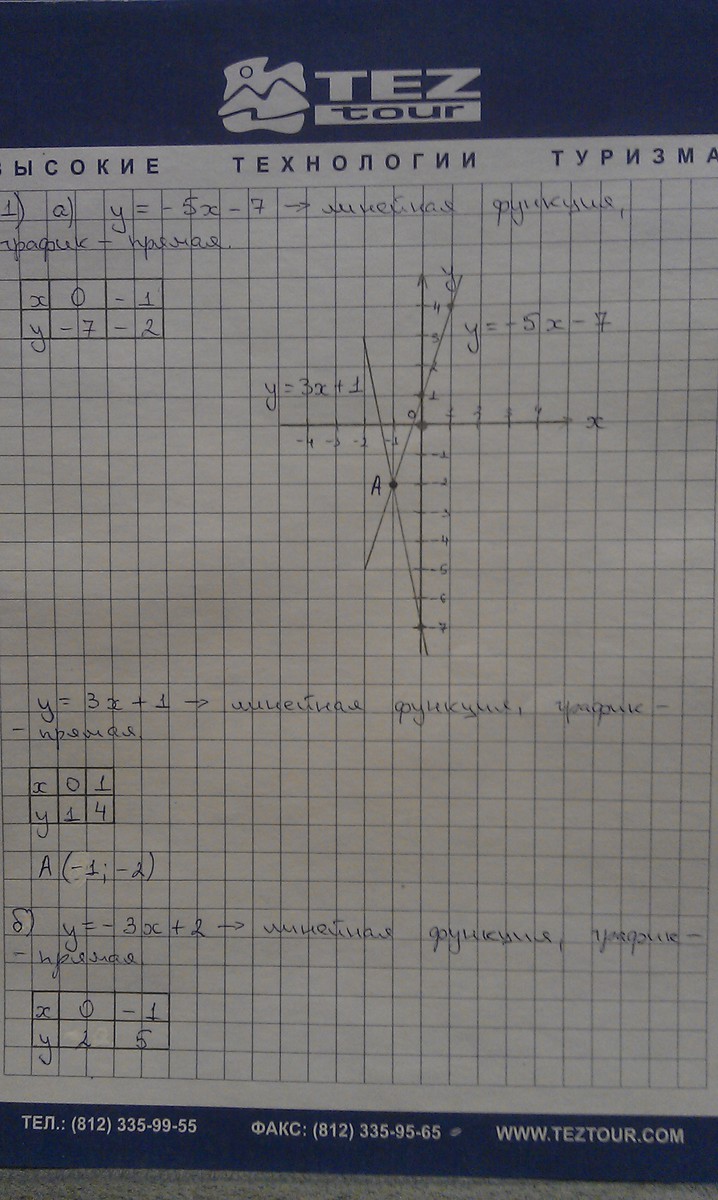 TEZ
tour
ВЫСОКИЕ ТЕХНОЛОГИИ ТУРИЗМА
1) а) y = - 5x - 7 → линейная функция,
график - прямая.
x 0 - 1
y - 7 - 2
y
4
3
2
1
0
-4 -3 -2 -1 1 2 3 4 x
-1
-2
-3
-4
-5
-6
-7
y = - 5x - 7
y = 3x + 1
A
y = 3x + 1 → линейная функция, график -
- прямая
x 0 1
y 1 4
A (-1; -2)
б) y = - 3x + 2 → линейная функция, график -
- прямая
x 0 - 1
y 2 5
ТЕЛ.: (812) 335-99-55 ФАКС: (812) 335-95-65 WWW.TEZTOUR.COM